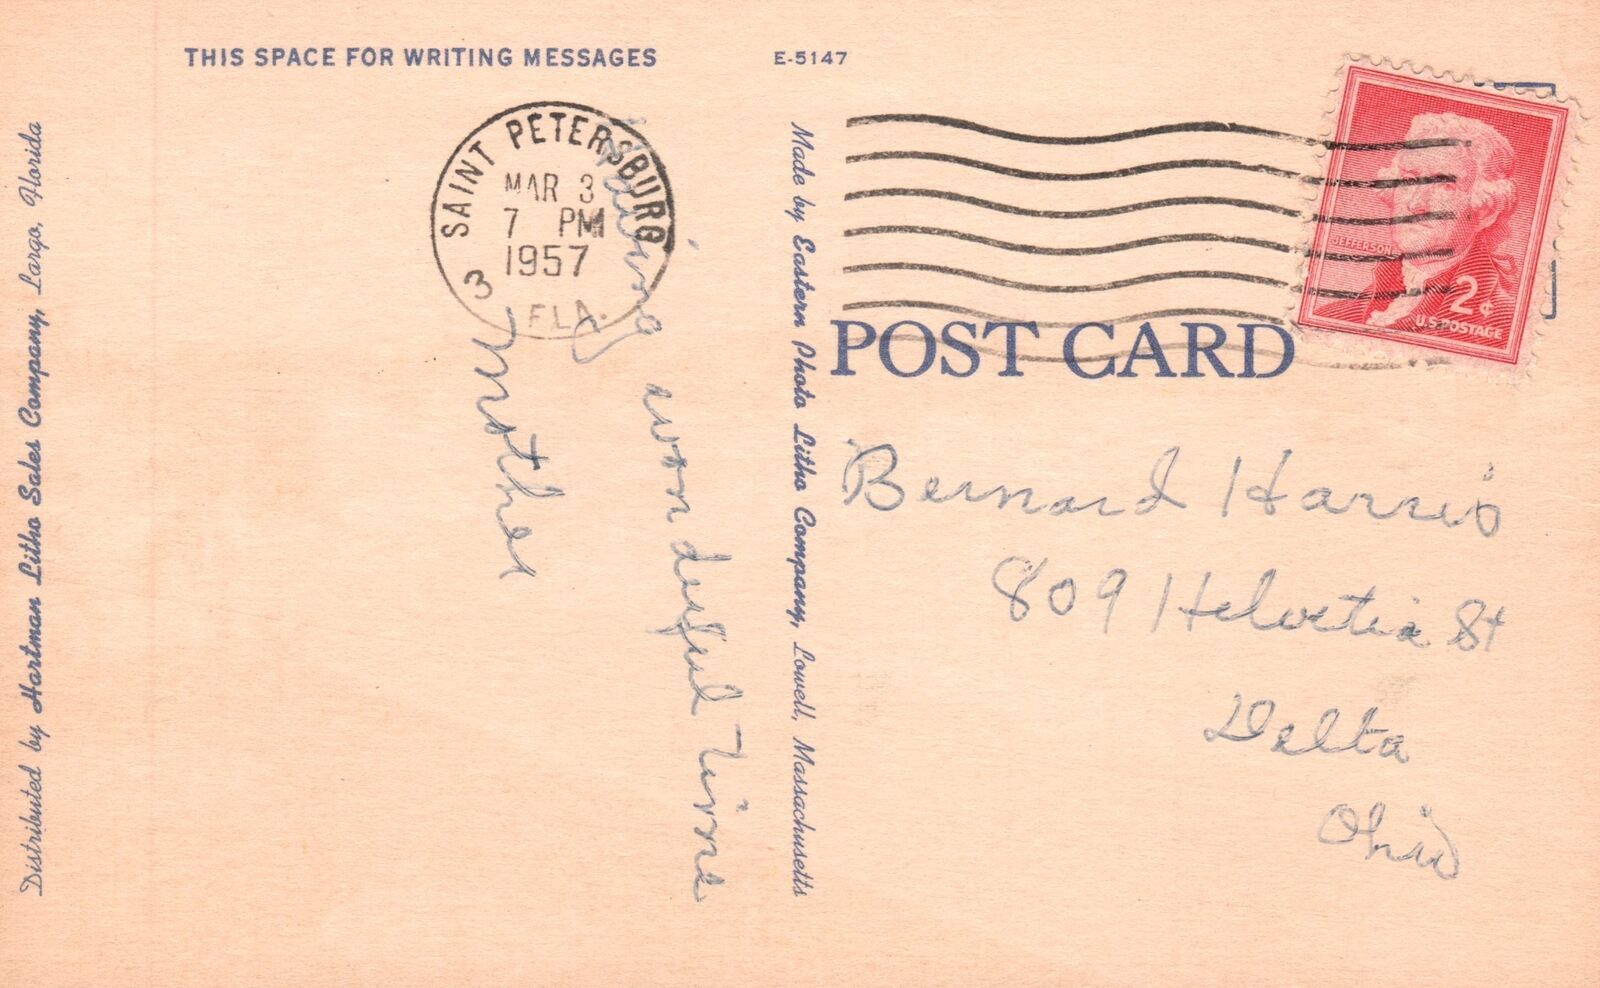 THIS SPACE FOR WRITING MESSAGES
E-5147
Distributed by Hartman Litho Sales Company, Largo, Florida
SAINT PETERSBURG
MAR 3
7 PM
1957
3
FLA.
Having
wonderful Time
Mother
Made by Eastern Photo Litho Company, Lowell, Massachusetts
JEFFERSON
2¢
U.S. POSTAGE
POST CARD
Bernard Harris
809 Helvetia St
Delta
Ohio